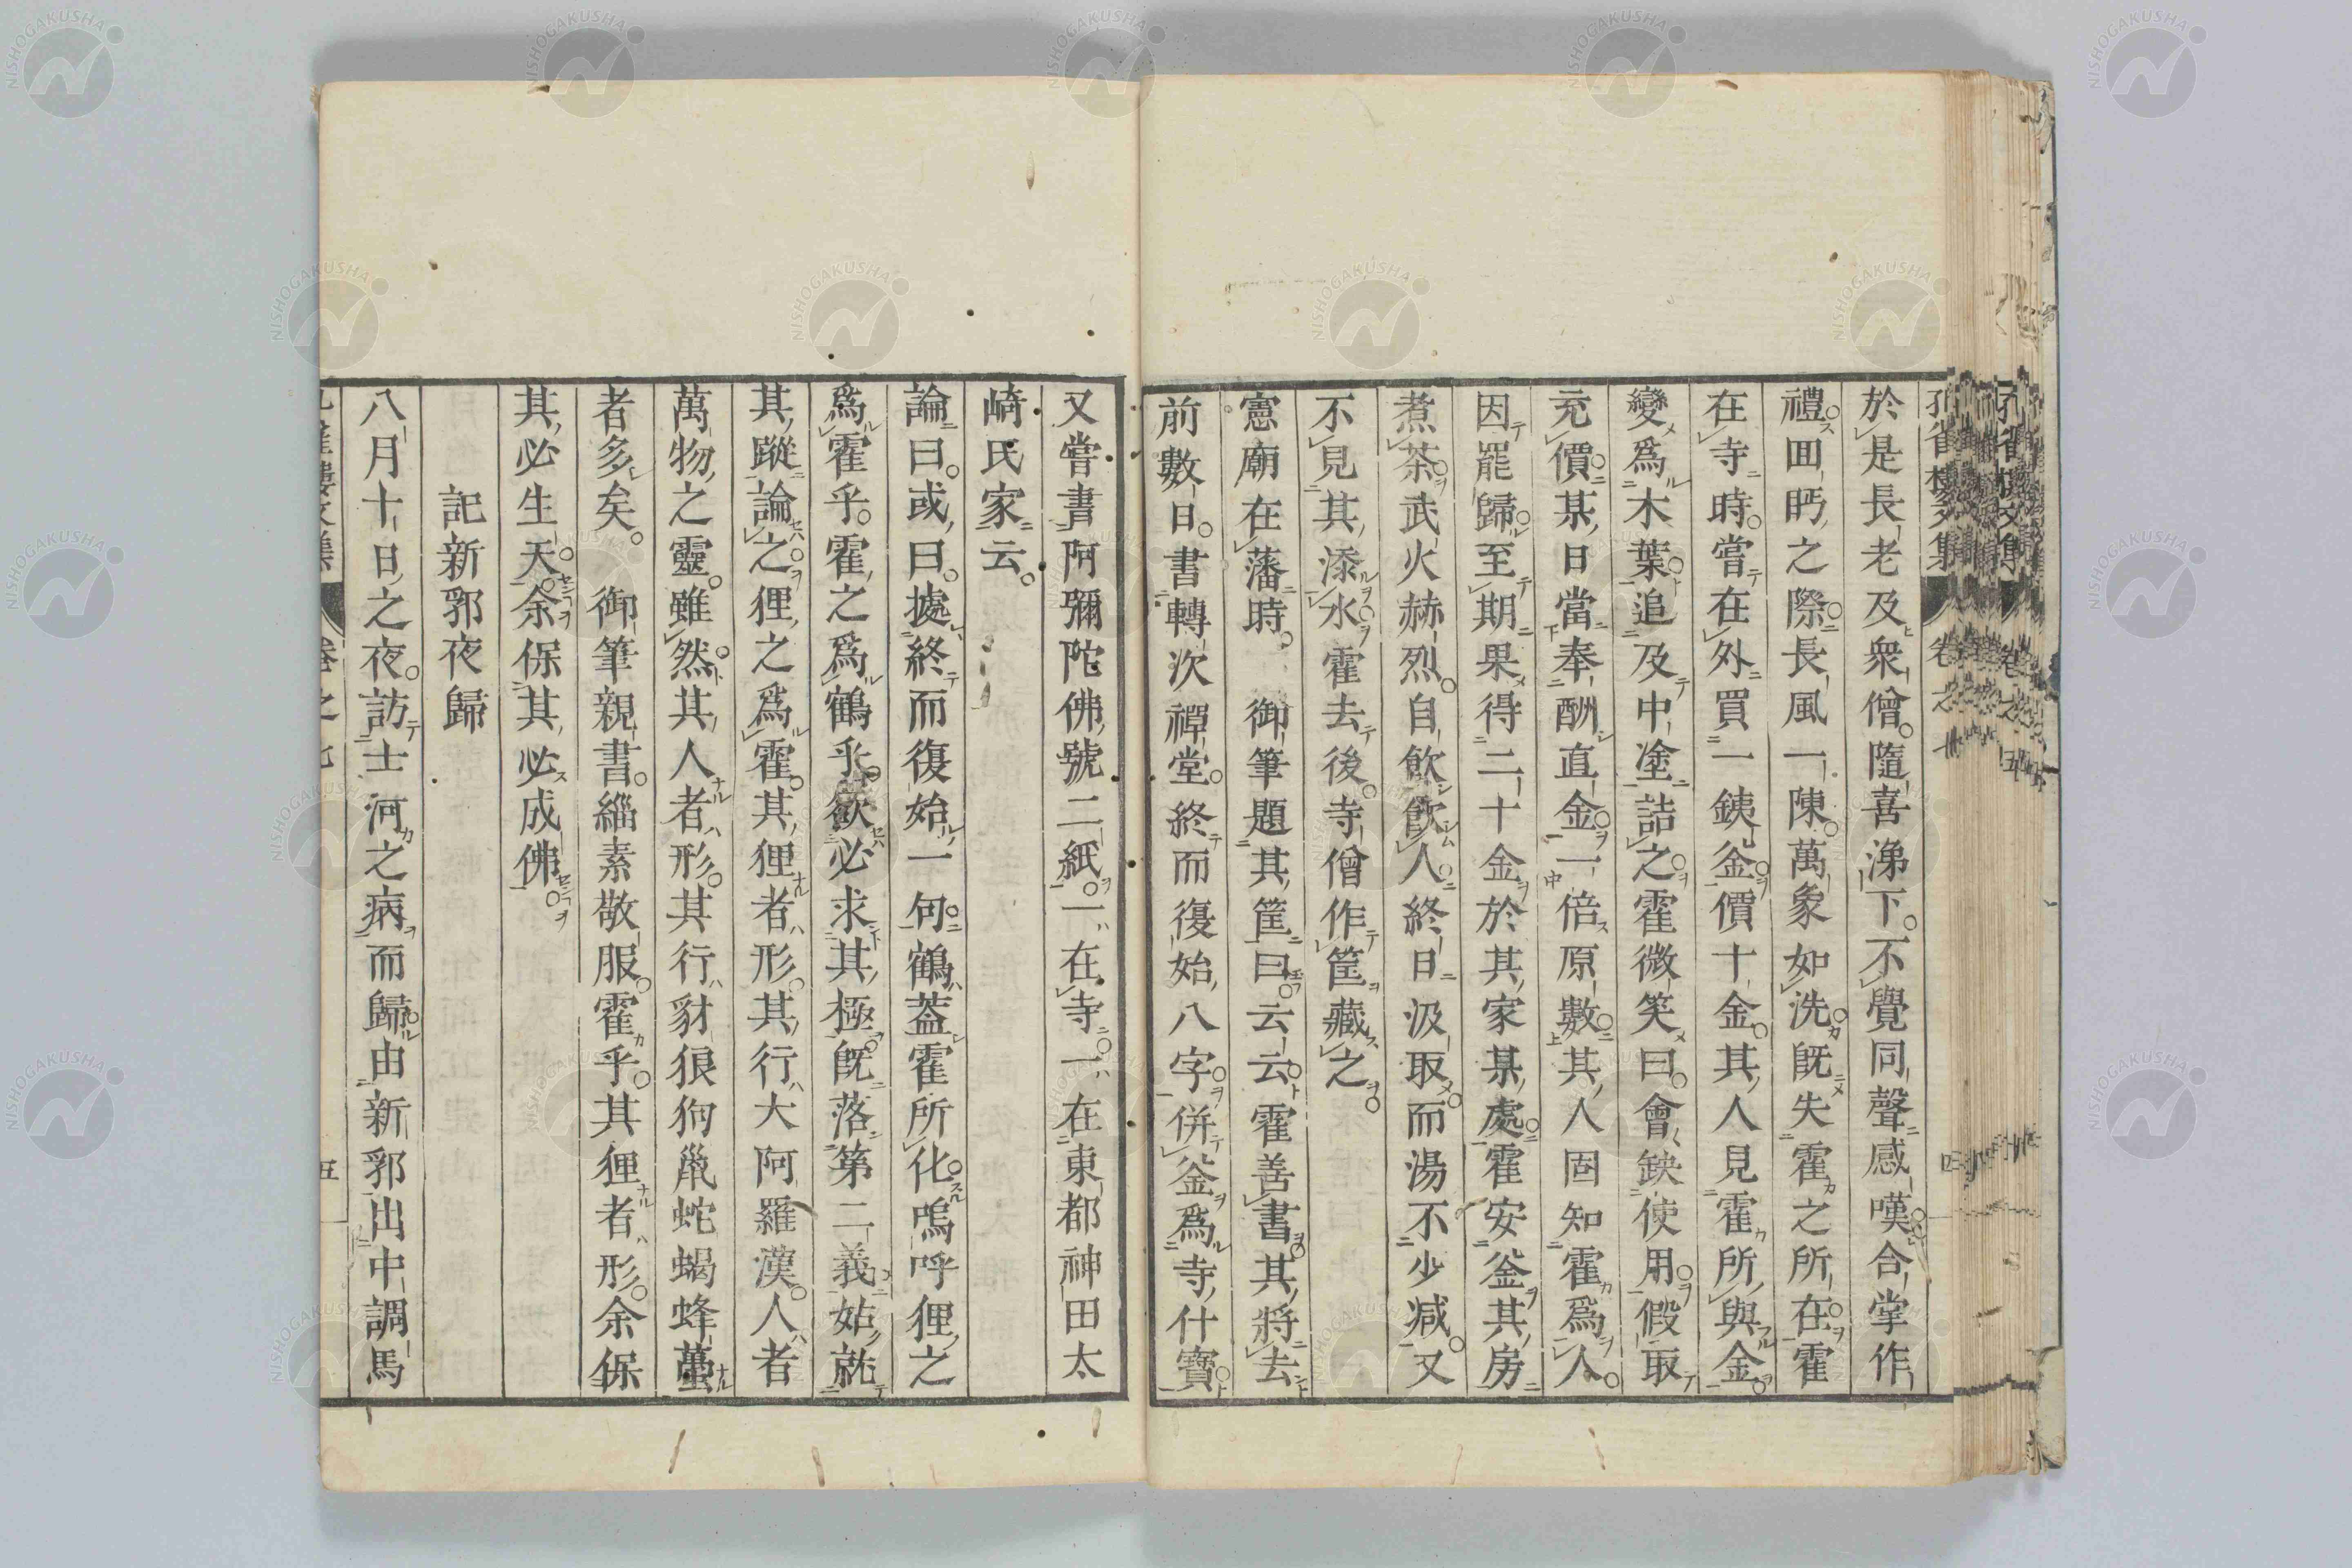 於是長老及衆僧隨喜涕下不覺同聲感嘆合掌作
禮囬眄之際長風一陳萬象如洗旣失霍之所在霍
在寺時嘗在外買一銕釜價十金其人見霍所與金
變爲木葉追及中塗詰之霍微笑曰會缺使用假取
充價某日當奉酬直金一倍原數其人固知霍爲人
因罷歸至期果得二十金於其家某處霍安釜其房
煮茶武火赫烈自飲飮人終日汲取而湯不少減又
不見其添水霍去後寺僧作筐藏之
憲廟在藩時御筆題其筐曰云云霍善書其將去
前數日書轉次禪堂終而復始八字併釜爲寺什寶
又嘗書阿彌陀佛號二紙一在寺一在東都神田太
﨑氏家云
論曰或曰據終而復始一句鶴蓋霍所化嗚呼狸之
爲霍乎霍之爲鶴乎欲必求其極旣落第二義姑就
其蹤論之狸之爲霍其狸者形其行大阿羅漢人者
萬物之靈雖然其人者形其行豺狼狗鼠蛇蝎蜂蠆
者多矣御筆親書緇素敬服霍乎其狸者形余保
其必生天余保其必成佛
記新郭夜歸
八月十日之夜訪士河之病而歸由新郭出中調馬
孔雀樓文集 卷之七 五